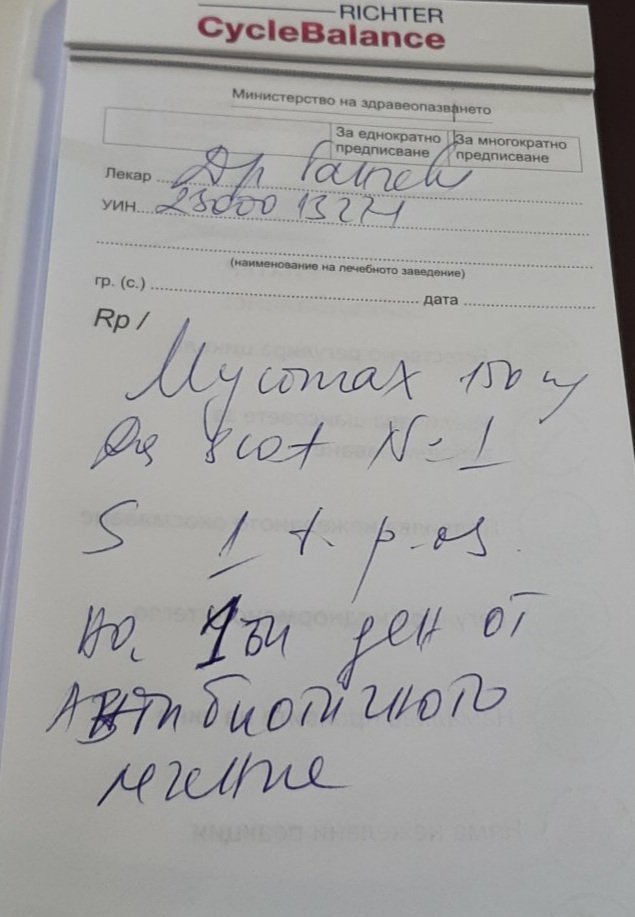 RICHTER
CycleBalance
Министерство на здравеопазването
За еднократно предписване
За многократно предписване
Лекар Др
УИН 2300013271
(наименование на лечебното заведение)
гр. (с.) дата
Rp /
Mycomax 150 mg
Da scat N=1
S 1 t. p-os
на 1ви ден от
Антибиотичното
лечение